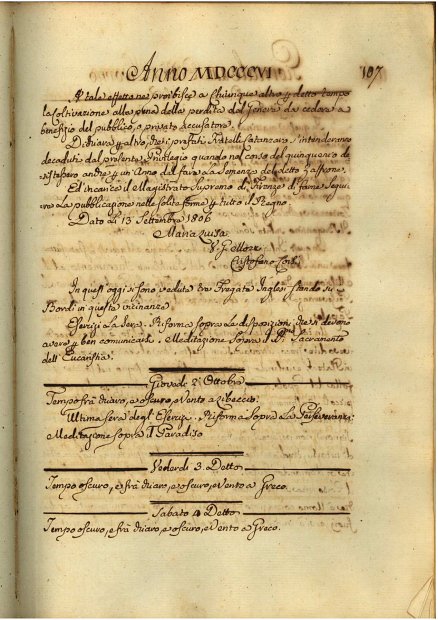 Anno MDCCCVI 107
A tale effetto ne proibisce a chiunque altro p detto tempo
la Coltivazione alla pena della perdita del Genere da cedere a
benefizio del pubblico, e privato Accusatore.
Dichiara p altro, che i prefati Fratelli Catanzaro s'intenderanno
decaduti dal presente Privilegio quando nel corso del quinquennio de
sistessero anche p un Anno dal fare la Semenza del detto
Ed incarica il Magistrato Supremo di Firenze di farne Segui
re la pubblicazione nelle Solite forme p tutto il Regno.
Dato Li 13 Settembre 1806
Maria Luisa
V. G.
Cristofano
In quest' oggi si sono vedute tre Fregate Inglesi stando si
Bordi in questa vicinanza.
Esercizj La Sera. Riforma sopra La disposizioni, che si devono
avere p ben comunicarsi. Meditazione Sopra il SS. Sacramento
dell' Eucaristia.
Giovedì 2 Ottobre
Tempo frà chiaro, e oscuro, e Vento a Libeccio.
Ultima Sera degl' Esercizj. Riforma Sopra La Perseveranza:
Meditazione sopra il Paradiso
Venerdì 3. Detto
Tempo oscuro, e frà chiaro, e oscuro, e Vento a Greco.
Sabato 4 Detto
Tempo oscuro, e frà chiaro, e oscuro, e Vento a Greco.